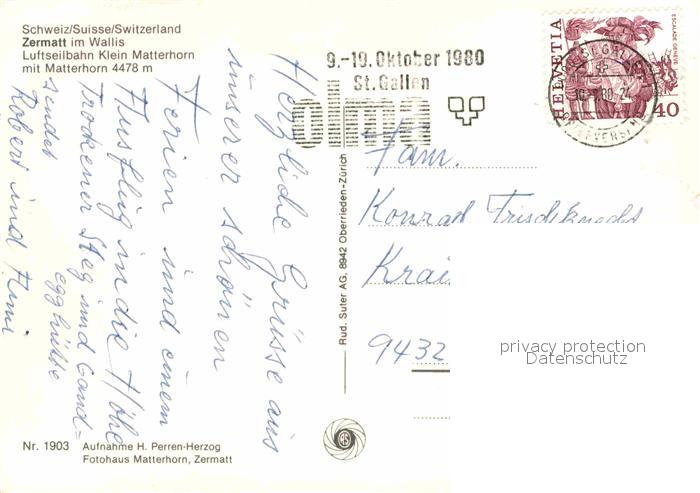 Schweiz/Suisse/Switzerland
Zermatt im Wallis
Luftseilbahn Klein Matterhorn
mit Matterhorn 4478 m
9.-19. Oktober 1980
St. Gallen
olma
HELVETIA
ESCALADE GENÈVE
40
Herzliche Grüsse aus
unserer schönen
Ferien und einem
Ausflug in die Höhe
Trockener Steg und Gand=
egghütte
sendet
Robert und
Fam.
Konrad Frischknecht
9432
Rud. Suter AG, 8942 Oberrieden-Zürich
privacy protection
Datenschutz
Nr. 1903 Aufnahme H. Perren-Herzog
Fotohaus Matterhorn, Zermatt